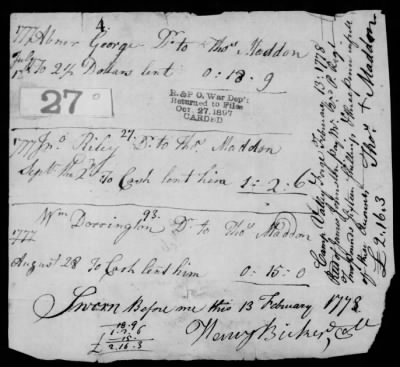 4.
1777 Abner George Dr to Thos Maddon
July
17 To 2½ Dollars lent 0:18..9
27
R. & P. O. War Dep't.
Returned to Files
Oct. 27, 1897
CARDED
27.
1777 Jno Riley Dr to Thos Maddon
Sept the 2d To Cash lent him 1:2:6
93.
Wm Dorrington Dr to Thos Maddon
1777
August 28 To Cash lent him 0:15:0
Sworn Before me this 13 February 1778
Henry Bicker, Coll
18..9
1..2..6
15..
£ 2..16..3
Camp Vally Forge February 13: 1778
Recd from
two pounds sixteen shillings & three pence in full
of this Account, Thos + Maddon
£2..16..3